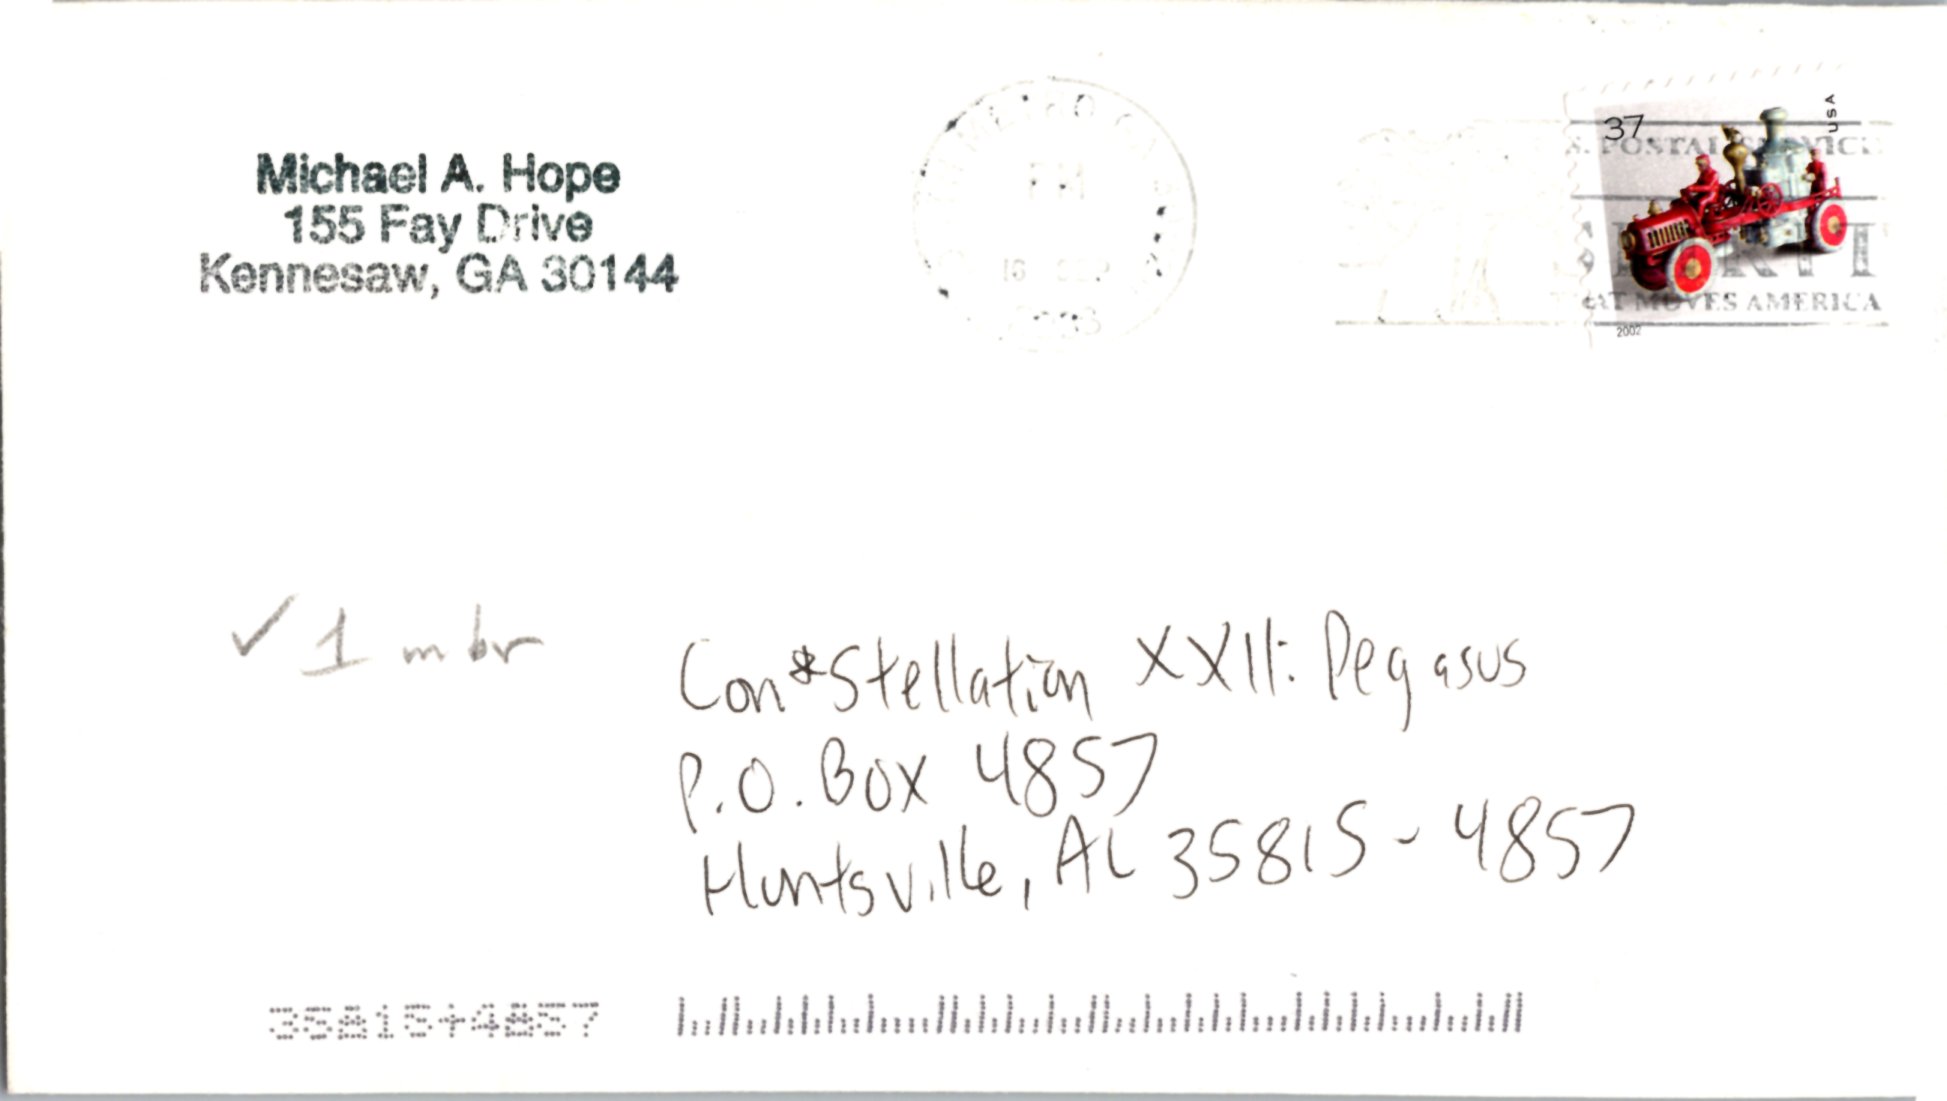 Michael A. Hope
155 Fay Drive
Kennesaw, GA 30144
PM
16 SEP
2003
37
USA
POSTAL SERVICE
THAT MOVES AMERICA
2002
✓ 1 mbr
Con*Stellation XXII: Pegasus
P.O. Box 4857
Huntsville, AL 35815-4857
35815+4857